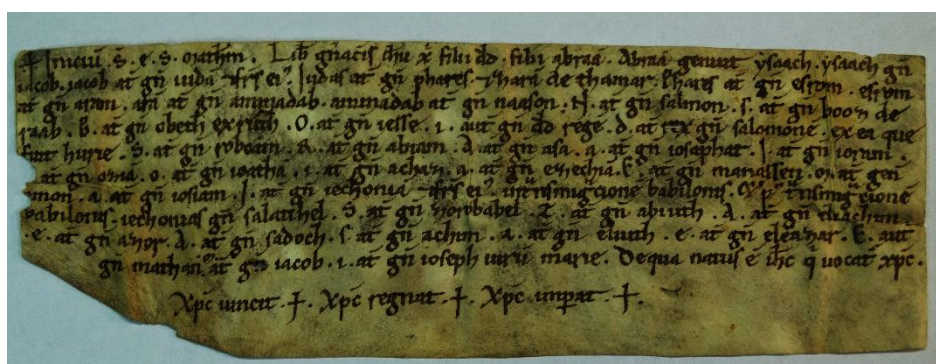 + Iniciū . S . e . S . mathm̄ . Lib gn̄acīs ihū x̄ filii dd . filii abraā . Abraā genuit ẏsaach . ẏsaach gn̄
iacob . iacob at̄ gn̄ iudā ⁊ frs̄ ei' . Iudas at̄ gn̄ phares ⁊ zharā de thamar . Phares at̄ gn̄ esrom . esrom
at̄ gn̄ aram . arā at̄ gn̄ aminadab . aminadab at̄ gn̄ naason . N . at̄ gn̄ salmon . s . at̄ gn̄ booz de
raab . b . at̄ gn̄ obeth ex ruth . O . at̄ gn̄ iesse . i . aut̄ gn̄ dd̄ regē . d . at̄ rex gn̄ salomonē . ex ea que
fuit hurie . S . at̄ gn̄ roboam . R . at̄ gn̄ abiam . A . at̄ gn̄ asa . a . at̄ gn̄ iosaphat . I . at̄ gn̄ ioram .
at̄ gn̄ oziā . o . at̄ gn̄ ioathā . i . at̄ gn̄ achaz . a . at̄ gn̄ ezechiā . E . at̄ gn̄ manassen . m . at̄ gen
mon . a . at̄ gn̄ iosiam . I . at̄ gn̄ iechoniā ⁊ frs̄ ei' . in tnsmigcionē babilonis . ⁊ p' tnsmigcionē
babilonis . iechonias gn̄ salatihel . S . at̄ gn̄ zorobabel . Z . at̄ gn̄ abiuth . A . at̄ gn̄ eliachim .
. e . at̄ gn̄ azor . A . at̄ gn̄ sadoch . s . at̄ gn̄ achim . a . at̄ gn̄ eliuth . e . at̄ gn̄ eleazar . E . aut̄
gn̄ mathan . m̄ at̄ gn̄ iacob . i . at̄ gn̄ ioseph uirū marie . De qua natus ē ihc q uocat̄ xpc .
Xpc uincit . + . Xpc regnat . + . Xpc impat . + .